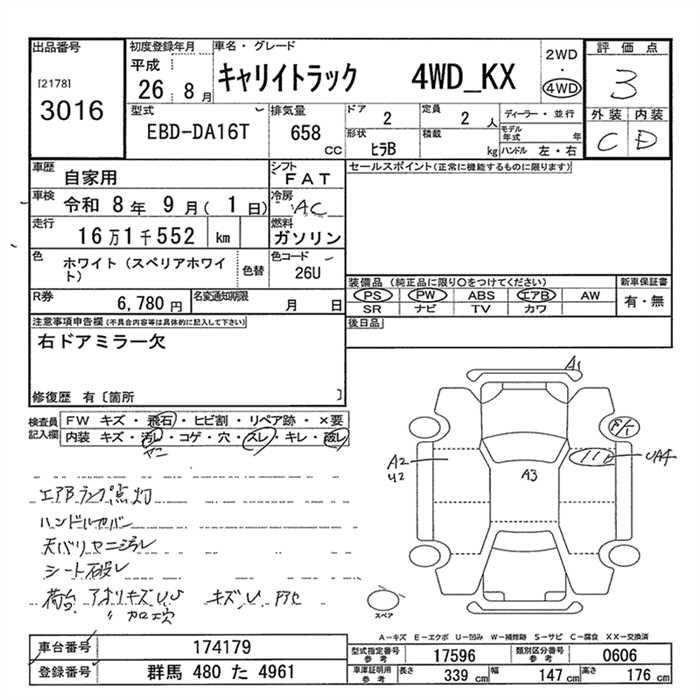 出品番号
[2178]
3016
初度登録年月
平成
26 8 月
車名・グレード
キャリイトラック 4WD_KX
2WD
・
4WD
評価点
3
外装 内装
C D
型式
EBD-DA16T
排気量
658
CC
ドア
2
定員
2 人
形状
ヒラB
積載
kg
ディーラー・並行
モデル
年式 年
ハンドル 左・右
車歴
自家用
シフト
FAT
車検
令和 8 年 9 月( 1 日)
冷房
AC
走行
16万1千552 km
燃料
ガソリン
色
ホワイト(スペリアホワイ
ト)
色替
色コード
26U
R券
6,780 円
名変通知期限
月 日
セールスポイント(正常に機能するものに限ります)
装備品 (純正品に限り○をつけてください)
PS PW ABS エアB AW
SR ナビ TV カワ
新車保証書
有・無
後日品
注意事項申告欄(不具合内容等は具体的に記入して下さい)
右ドアミラー欠
修復歴 有〔箇所 〕
検査員
記入欄
FW キズ・飛石・ヒビ割・リペア跡・×要
内装 キズ・汚レ・コゲ・穴・スレ・キレ・破レ
ヤニ
エアBランプ点灯
ハンドルカバー
天バリヤニジミ
シート破レ
荷台 アオリキズ
キズ
A1
A2
U2
A3
UA4
スペア
A−キズ E−エクボ U−凹み W−補修跡 S−サビ C−腐食 XX−交換済
車台番号
174179
登録番号
群馬 480 た 4961
型式指定番号
参考
17596
類別区分番号
参考
0606
車庫証明用
参考
長さ
339 cm
幅
147 cm
高さ
176 cm